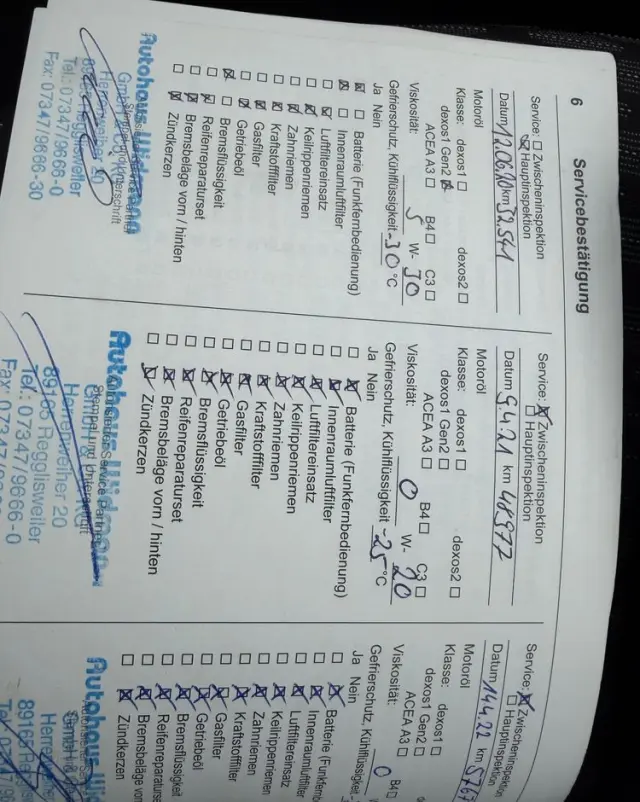 6 Servicebestätigung
Service: Zwischeninspektion
Hauptinspektion
Datum km
Motoröl
Klasse: dexos1 dexos2
dexos1 Gen2
ACEA A3 B4 C3
Viskosität: 5 W- 30
Gefrierschutz, Kühlflüssigkeit -30 °C
Ja Nein
Batterie (Funkfernbedienung)
Innenraumluftfilter
Luftfiltereinsatz
Keilrippenriemen
Zahnriemen
Kraftstofffilter
Gasfilter
Getriebeöl
Bremsflüssigkeit
Reifenreparaturset
Bremsbeläge vorn / hinten
Zündkerzen
Autohaus
GmbH
Herrenweiher 20
Regglisweiler
Tel.: 07347/9666-0
Fax: 07347/9666-30
Service: Zwischeninspektion
Hauptinspektion
Datum 9.4.21 km 48977
Motoröl
Klasse: dexos1 dexos2
dexos1 Gen2
ACEA A3 B4 C3
Viskosität: 0 W- 20
Gefrierschutz, Kühlflüssigkeit -25 °C
Ja Nein
Batterie (Funkfernbedienung)
Innenraumluftfilter
Luftfiltereinsatz
Keilrippenriemen
Zahnriemen
Kraftstofffilter
Gasfilter
Getriebeöl
Bremsflüssigkeit
Reifenreparaturset
Bremsbeläge vorn / hinten
Zündkerzen
Autohaus
Herrenweiher 20
89165 Regglisweiler
Tel.: 07347/9666-0
Fax: 07347/9666-
Service: Zwischeninspektion
Hauptinspektion
Datum 14.4.22 km
Motoröl
Klasse: dexos1
dexos1 Gen2
ACEA A3 B4
Viskosität: 0
Gefrierschutz, Kühlflüssigkeit
Ja Nein
Batterie (Funkfernbe
Innenraumluftfilter
Luftfiltereinsatz
Keilrippenriemen
Zahnriemen
Kraftstofffilter
Gasfilter
Getriebeöl
Bremsflüssigkeit
Reifenreparaturset
Bremsbeläge vo
Zündkerzen
Autohaus
GmbH
Herre
89165 Re